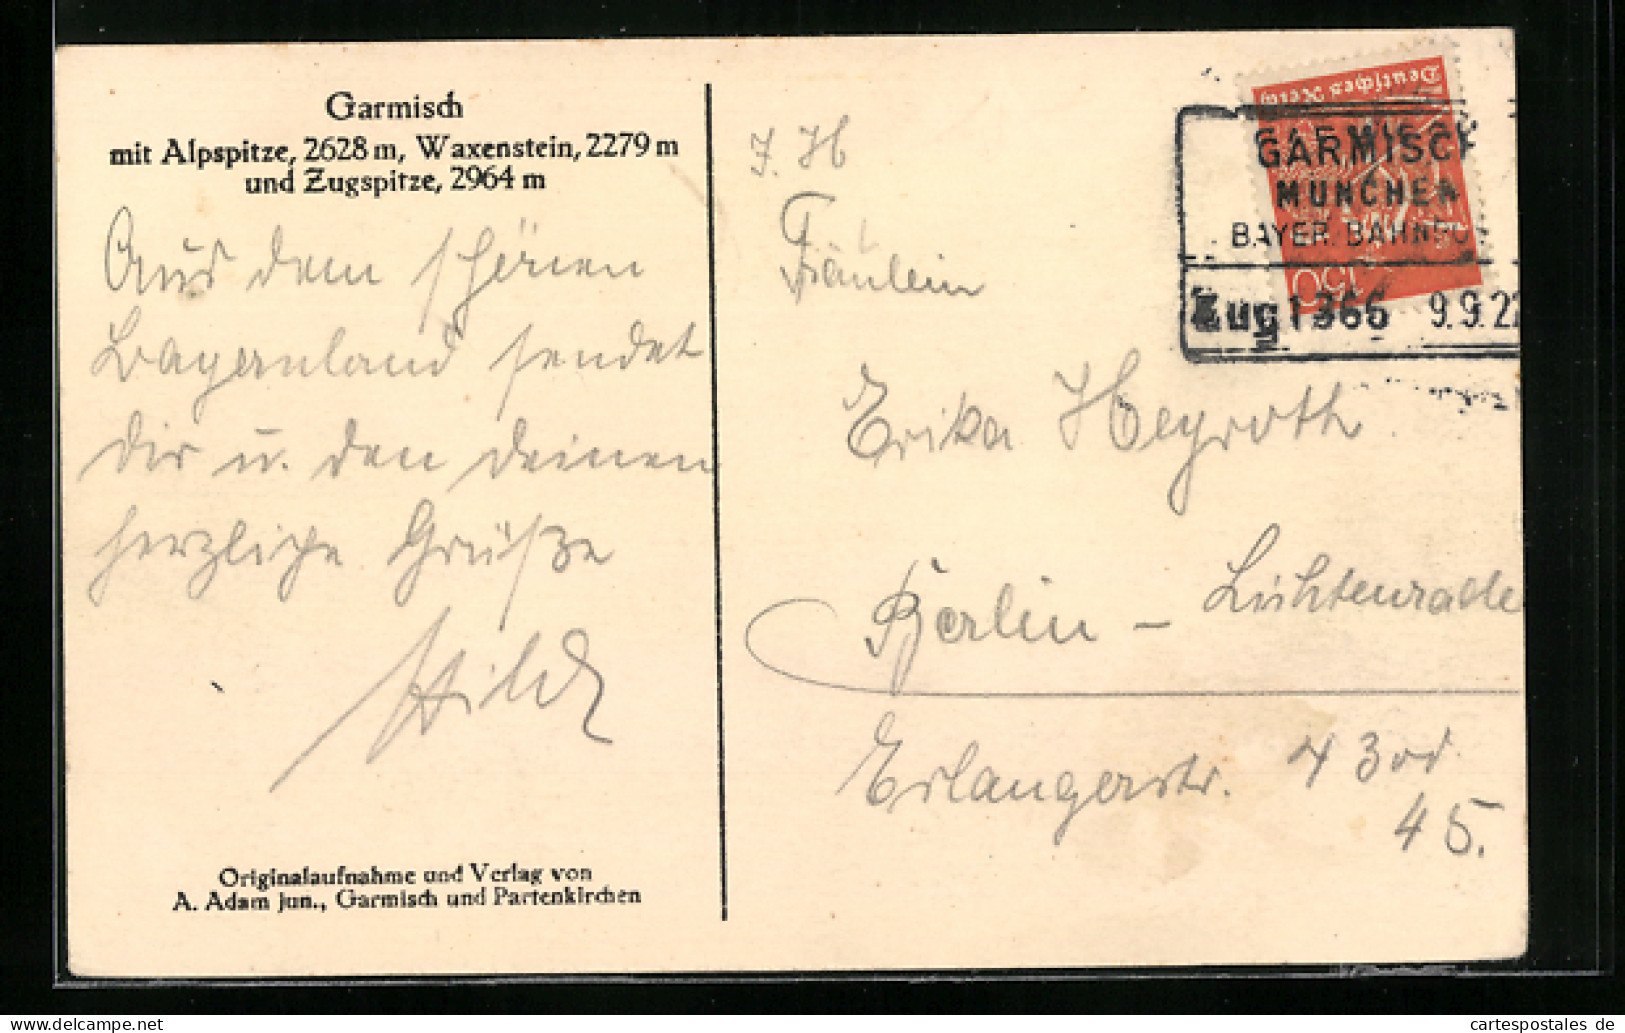 Garmisch
mit Alpspitze, 2628 m, Waxenstein, 2279 m
und Zugspitze, 2964 m
Aus dem schönen
Bayernland sendet
dir u. den deinen
herzliche Grüße
Hilde
Originalaufnahme und Verlag von
A. Adam jun., Garmisch und Partenkirchen
Deutsches Reich
150
GARMISCH
MÜNCHEN
BAYER. BAHNPO
Zug 1366 9.9.22
Fräulein
Erika Heyroth
Berlin – Lichtenrade
Erlangerstr. 43 od.
45.
cartespostales de